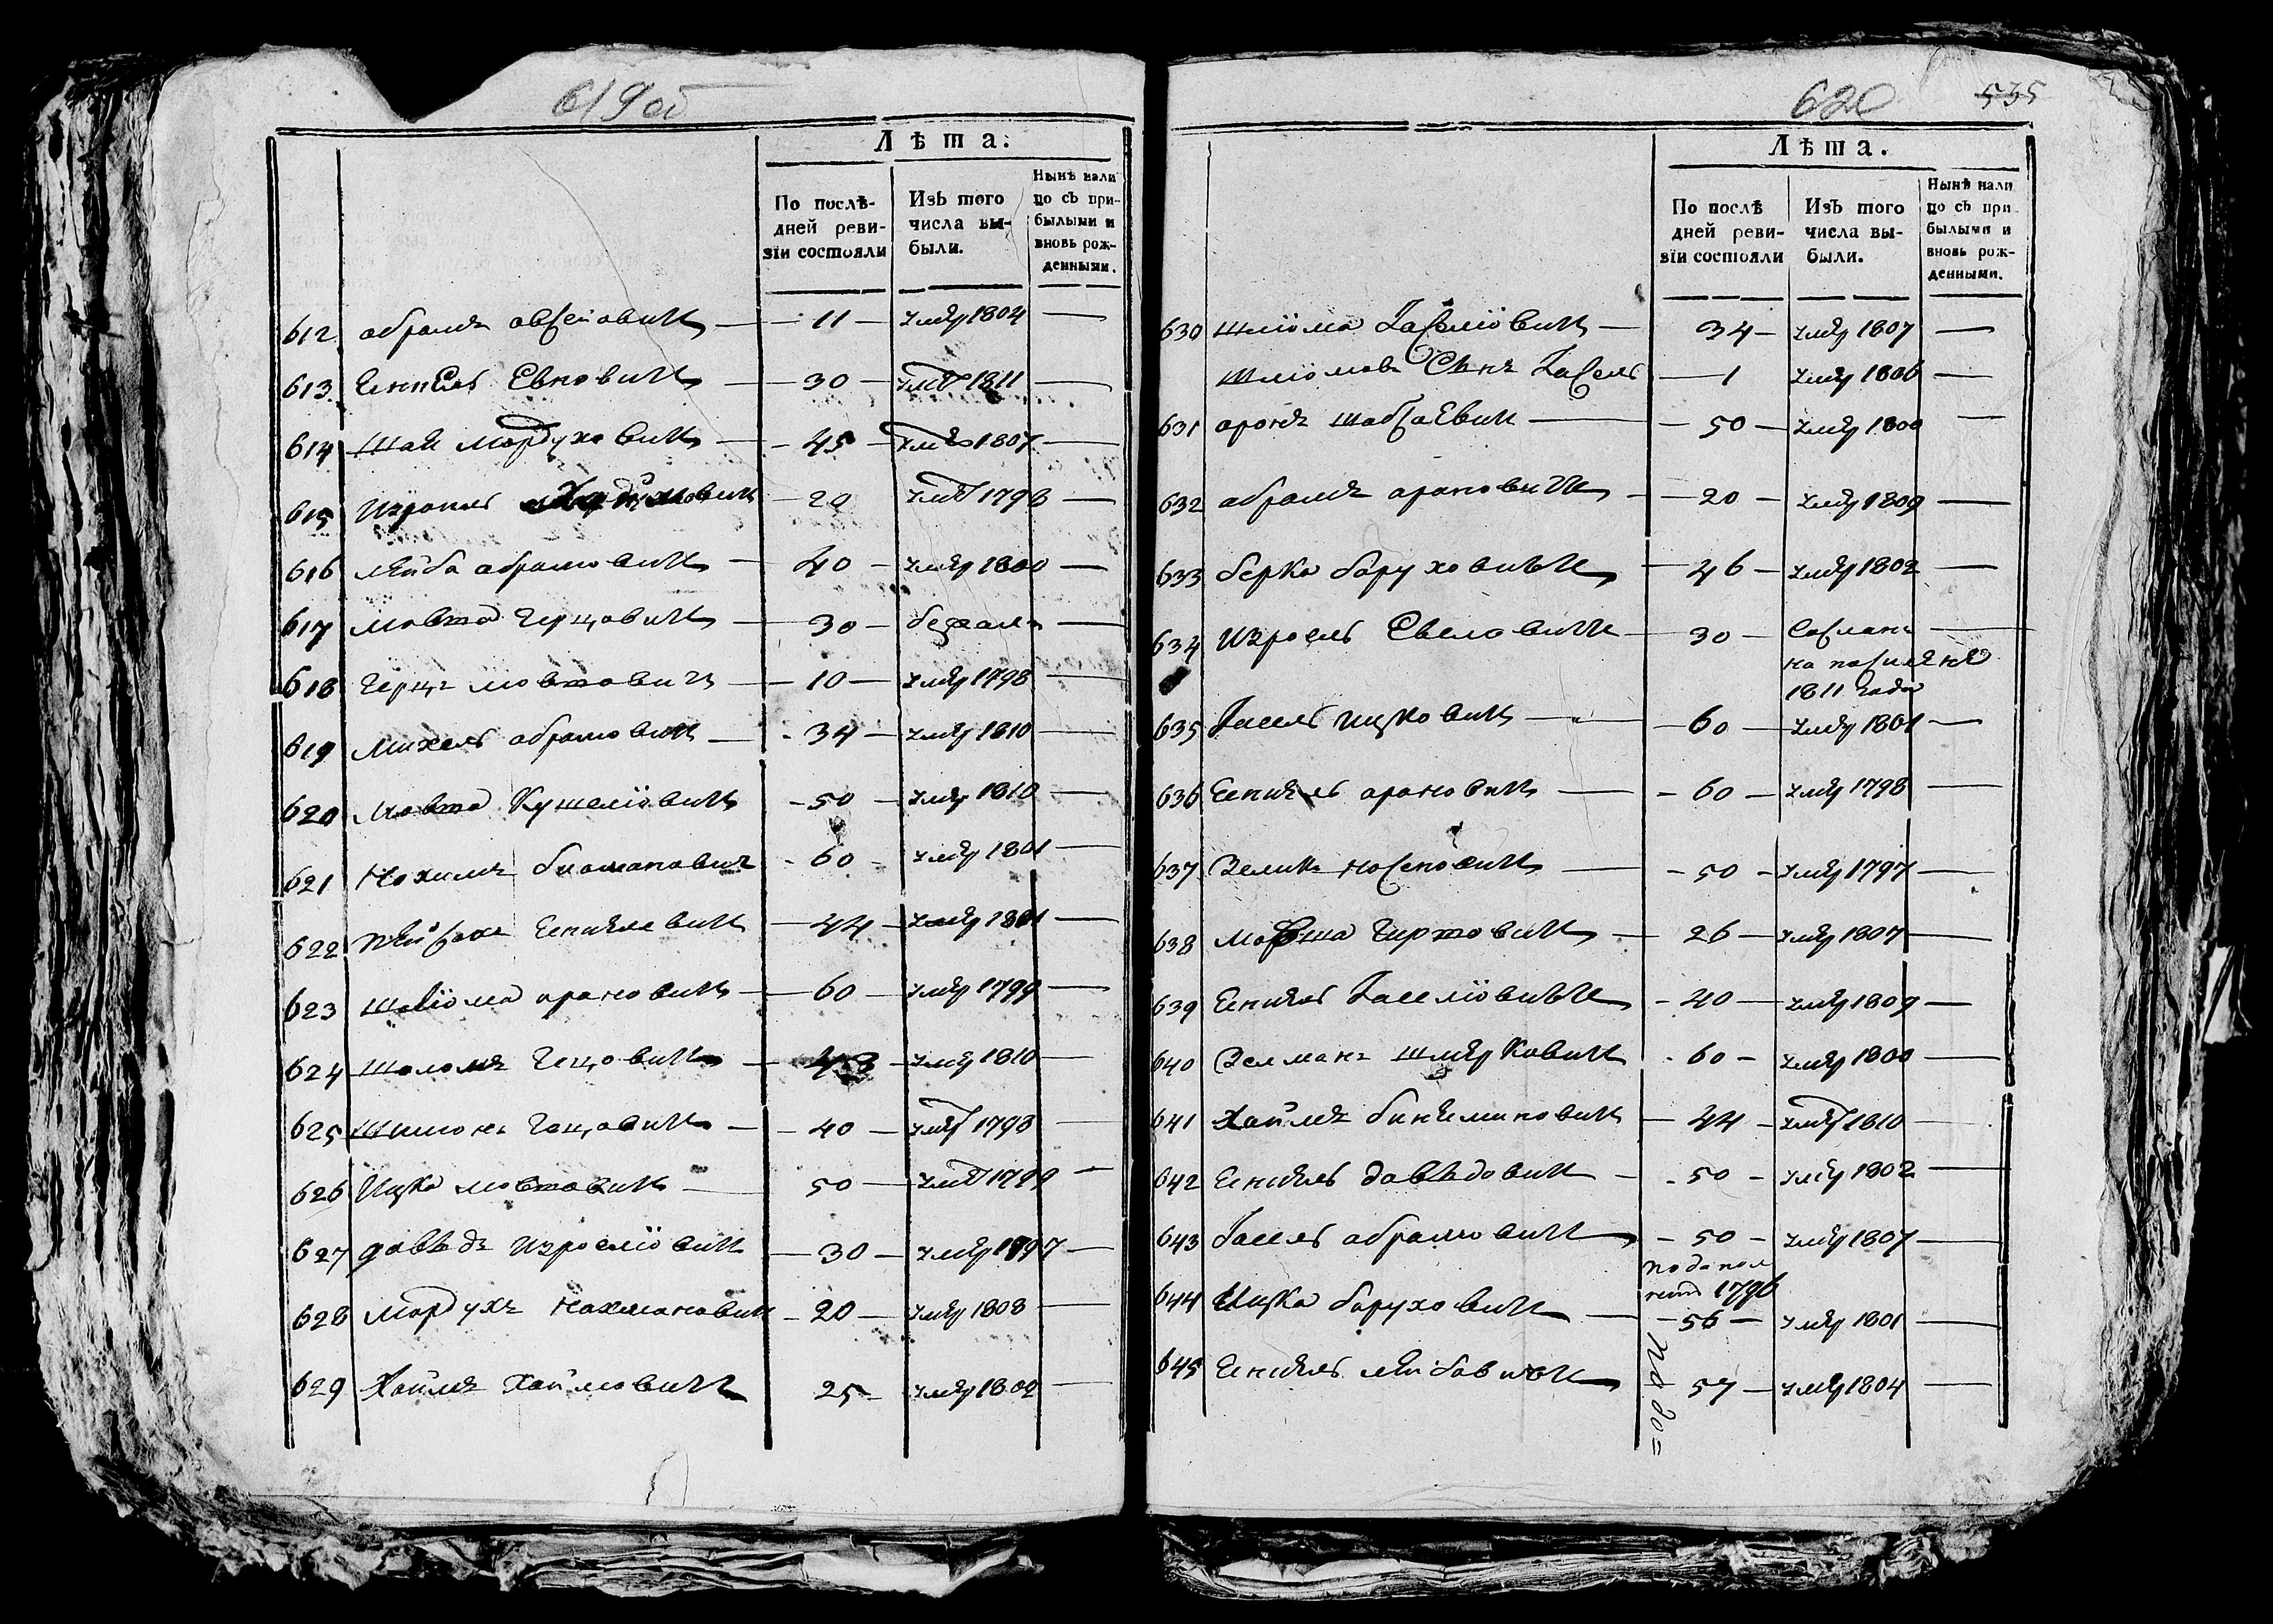 619 об
Лѣта.
По послѣ-
дней реви-
зїи состояли
Изъ того
числа вы-
были.
Нынѣ нали
цо съ при-
былыми и
вновь рож-
денными.
612 абрамъ овсеiовичъ — 11 — умер 1804 —
613 Евновичъ — 30 — умер 1811 —
614 Шая мордуховичъ — 45 — умер 1807 —
615 Израиль — 20 умер 1798 —
616 лейба абрамовичъ — 40 — умер 1800 —
617 мовша герцовичъ — 30 — бежалъ —
618 герцъ мовшовичъ — 10 — умер 1798 —
619 Михель абрамовичъ — 34 — умер 1810 —
620 мовша Кушелiовичъ — 50 — умер 1810 —
621 Нохимъ — 60 — умер 1801 —
622 пейсахъ — 44 — умер 1801 —
623 шлiома ароновичъ — 60 — умер 1799 —
624 шоломъ гецовичъ — умер 1810 —
625 Шимонъ гецовичъ — 40 — умер 1798 —
626 Ицка мовшовичъ — 50 — умер 1799 —
627 давыдъ израелiовичъ — 30 — умер 1797 —
628 мордухъ нахмановичъ — 20 — умер 1808 —
629 Хаимъ хаимовичъ 25 — умер 1802 —
620 535
Лѣта.
По послѣ
дней реви-
зїи состояли
Изъ того
числа вы-
были.
Нынѣ нали
цо съ при-
былыми и
вновь рож-
денными.
630 шлiома Iоселiовичъ — 34 — умер 1807 —
Шлiомовъ Сынъ Iосель — 1 умер 1806 —
631 аронъ шабсаевичъ — 50 — умер 1800 —
632 абрамъ ароновичъ — 20 — умер 1809 —
633 берка боруховичъ — 46 — умер 1802 —
634 Израель Евеловичъ — 30 — Сосланъ —
на поселенiе
1811 года
635 Iосель ицковичъ — 60 — умер 1801 —
636 ароновичъ — 60 — умер 1798 —
637 Зеликъ носеновичъ — 50 — умер 1797 —
638 мовша — 26 — умер 1807 —
639 Iоселiовичъ — 40 — умер 1809 —
640 Зелманъ шмерковичъ — 60 — умер 1800 —
641 Хаимъ бинеминовичъ — 44 — умер 1810 —
642 давыдовичъ — 50 — умер 1802 —
643 Iосель абрамовичъ — 50 — умер 1807 —
по допол
1796
644 Ицка боруховичъ — 56 — умер 1801 —
645 лейбовичъ 57 — умер 1804 —
по до=